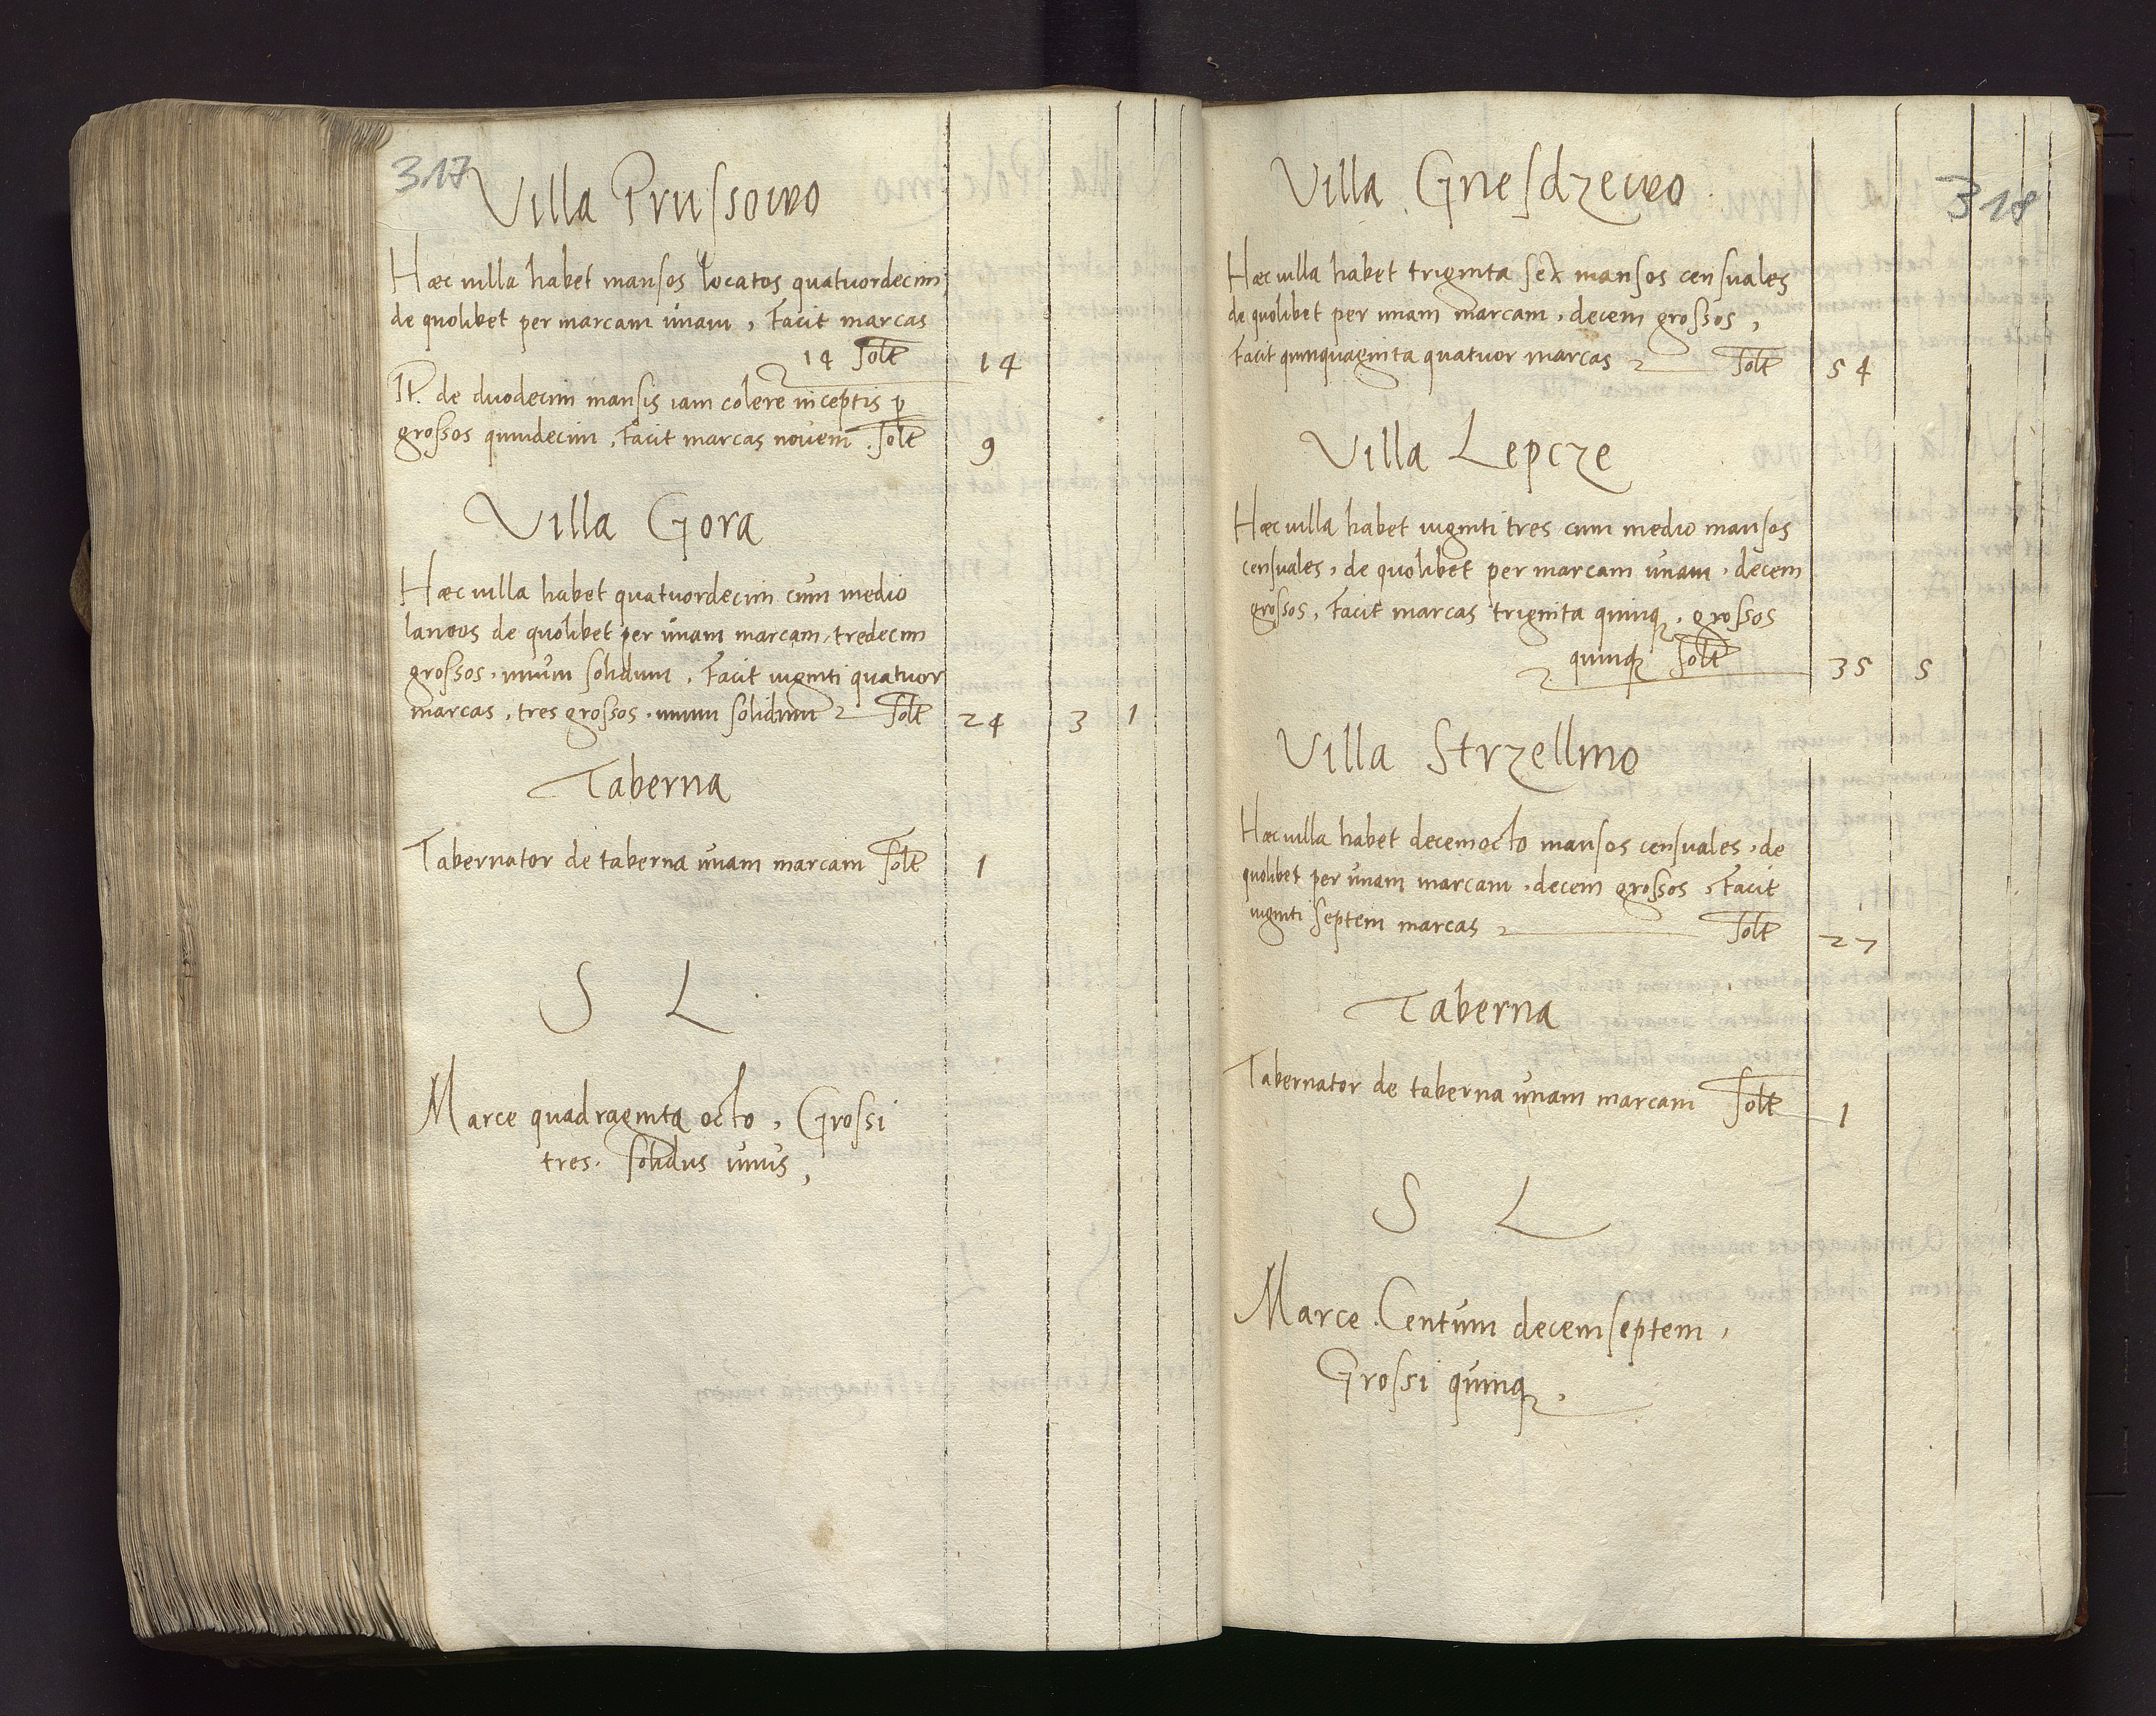 317
Villa Prussowo
Hæc uilla habet mansos locatos quatuordecim,
de quolibet per marcam unam, Facit marcas
14 Solt 14
It. de duodecim mansis iam colere inceptis p
grossos quindecim, Facit marcas nouem. Solt 9
Villa Gora
Hæc uilla habet quatuordecim cum medio
laneos de quolibet per unam marcam, tredecim
grossos, unum solidum, Facit uiginti quatuor
marcas, tres grossos, unum solidum Solt 24 3 1
Taberna
Tabernator de taberna unam marcam Solt 1
S L
Marce quadraginta octo, Grossi
tres. solidus unus,
318
Villa Gnesdzewo
Hæc uilla habet triginta sex mansos censuales
de quolibet per unam marcam, decem grossos,
Facit quinquaginta quatuor marcas Solt 54
Villa Lepcze
Hæc uilla habet uiginti tres cum medio mansos
censuales, de quolibet per marcam unam, decem
grossos, Facit marcas triginta quinq, grossos
quinq Solt 35 5
Villa Strzellino
Hæc uilla habet decemocto mansos censuales, de
quolibet per unam marcam, decem grossos, Facit
uiginti septem marcas Solt 27
Taberna
Tabernator de taberna unam marcam Solt 1
S L
Marce Centum decemseptem,
Grossi quinq,